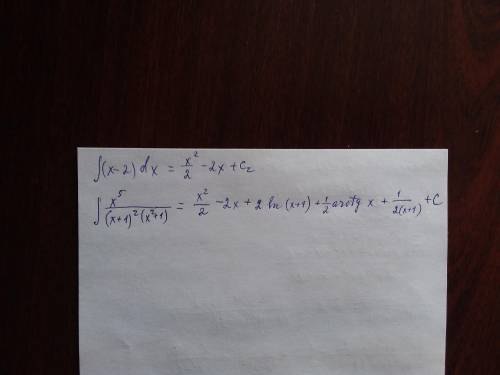 ∫(x-2)dx = x²/2 - 2x + C₂
∫ x⁵/((x+1)²(x²+1)) = x²/2 - 2x + 2 ln(x+1) + 1/2 arctg x + 1/(2(x+1)) + C